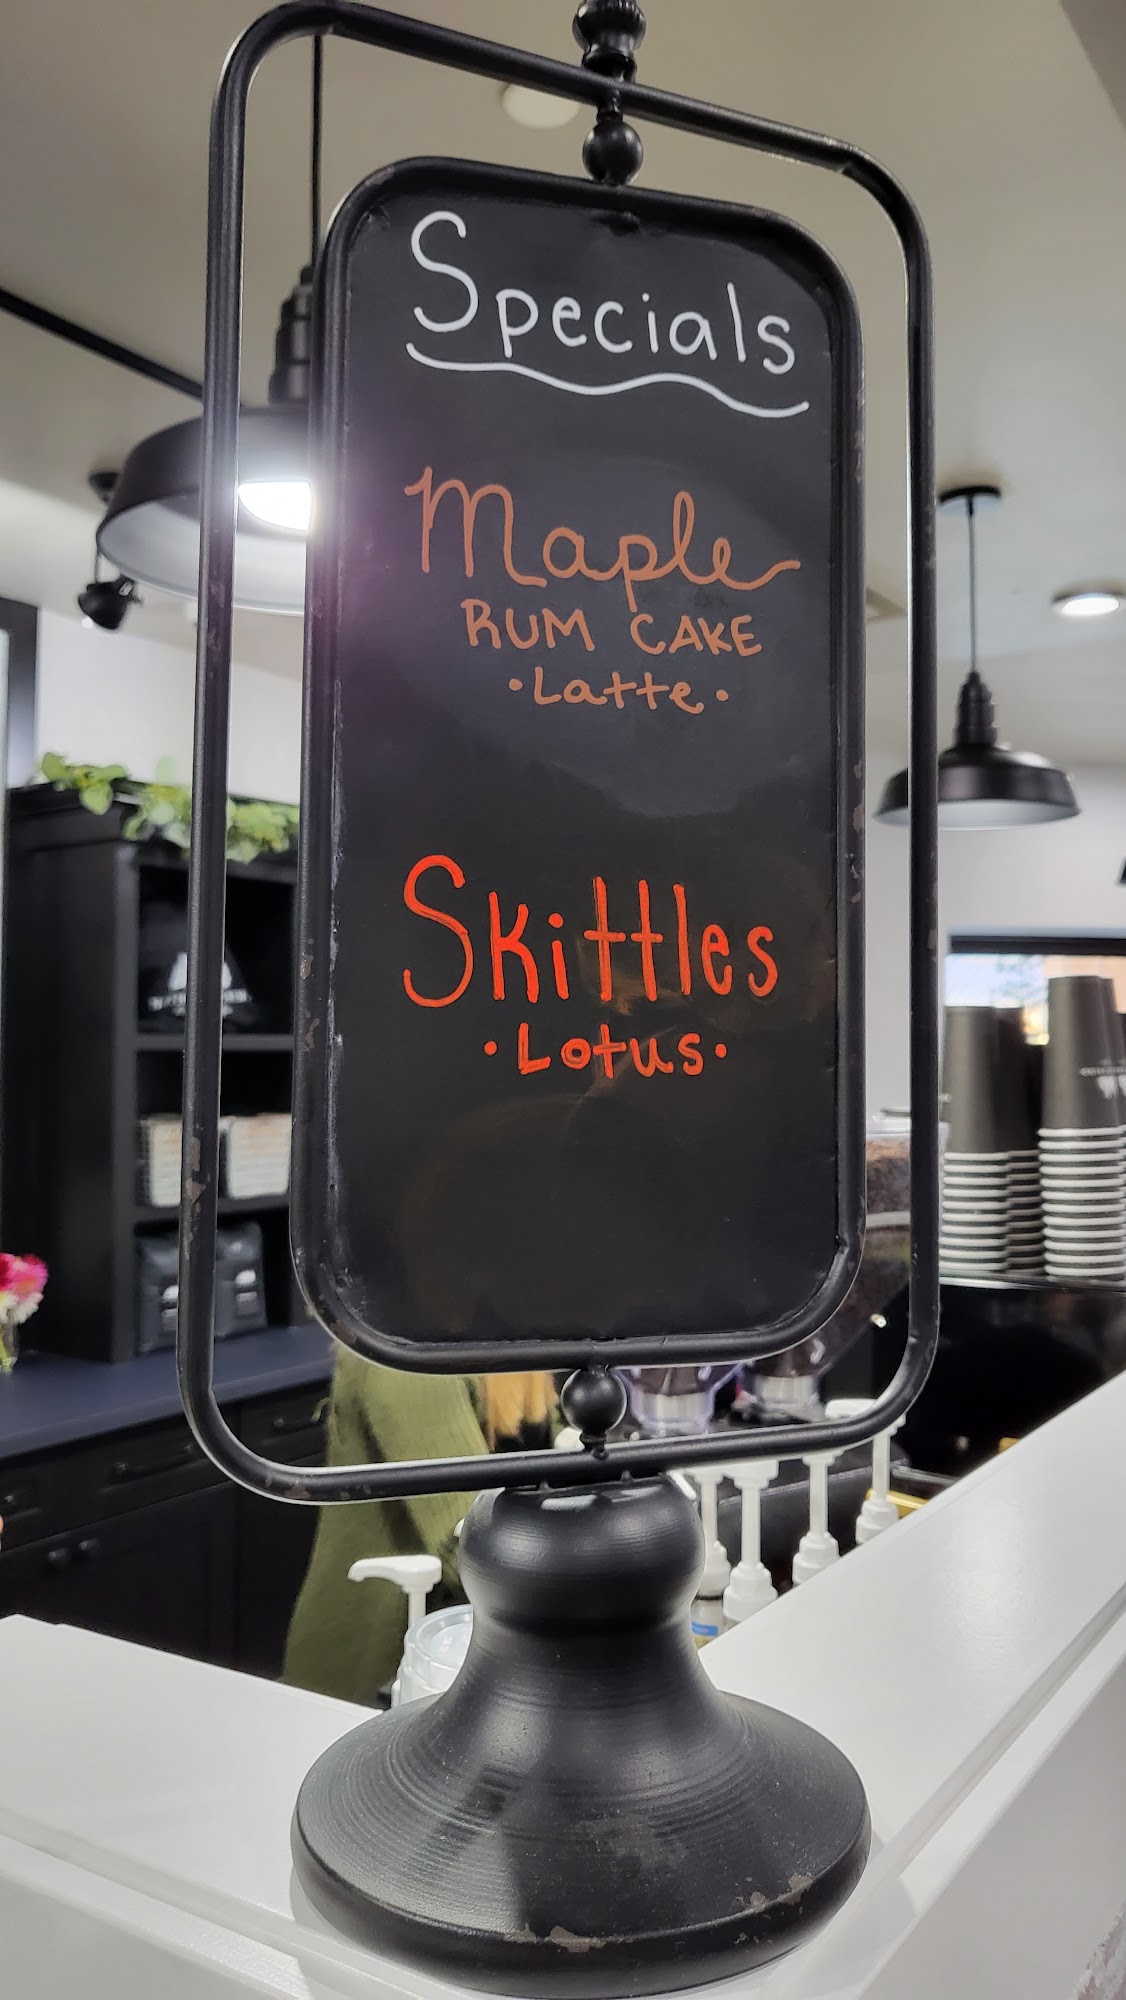 Specials
Maple
RUM CAKE
•Latte•
Skittles
•Lotus•